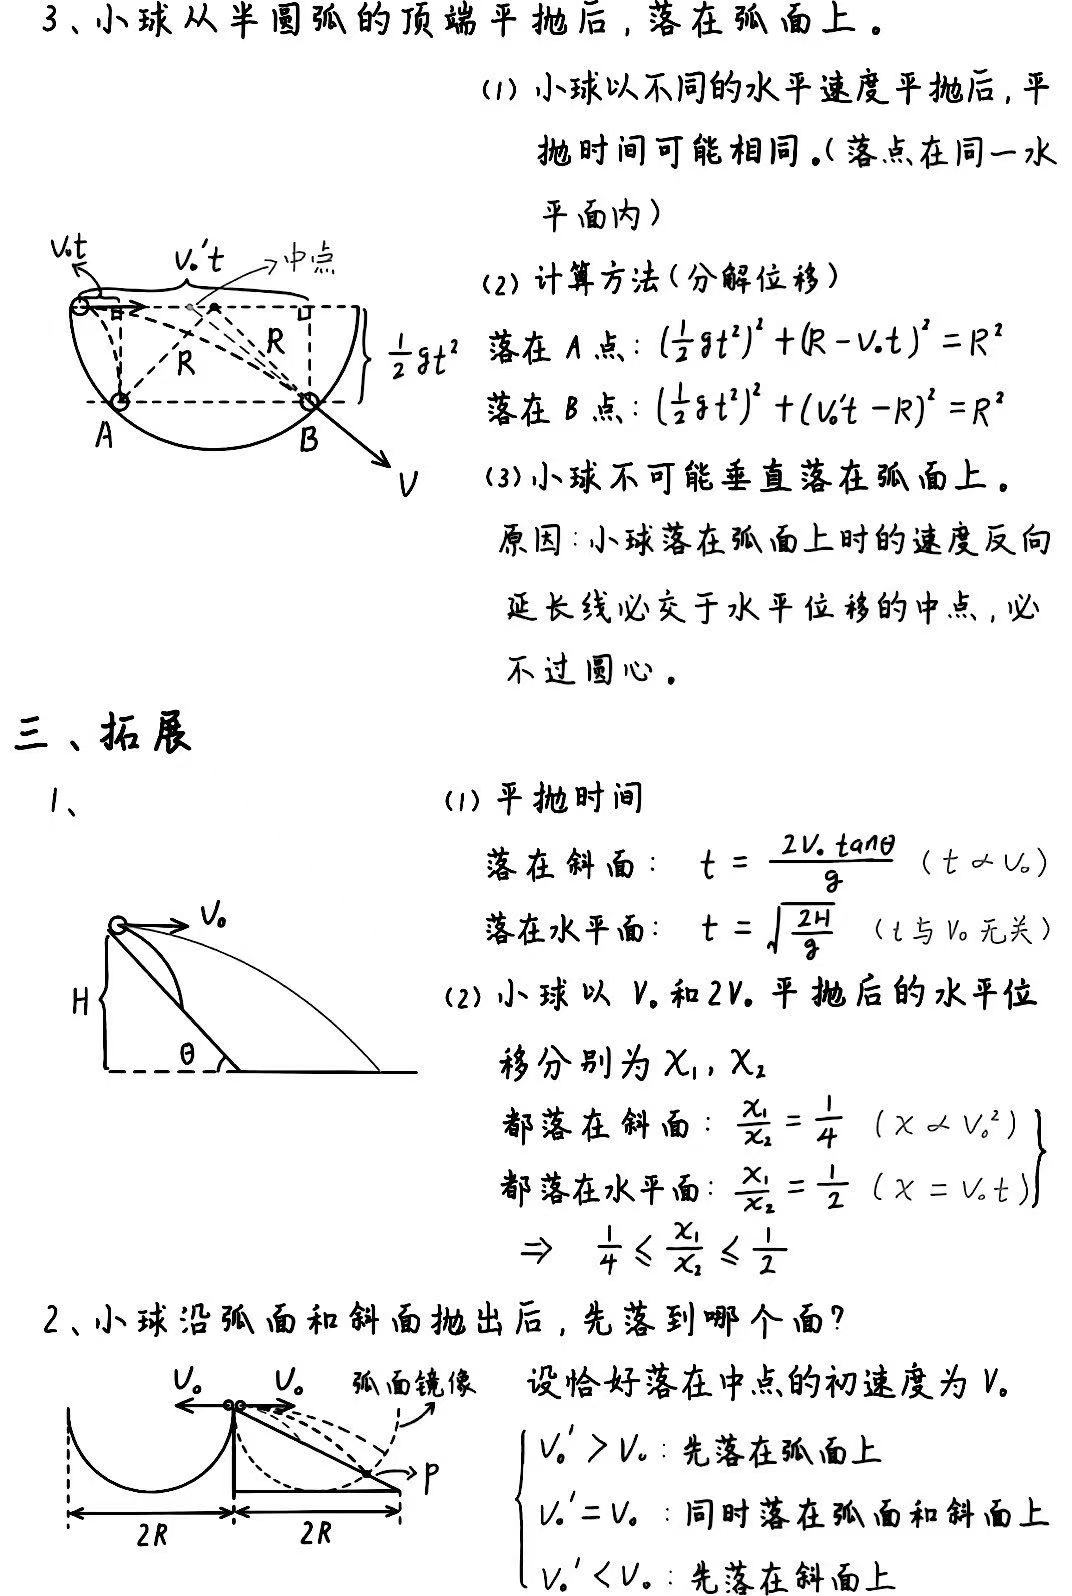 3、小球从半圆弧的顶端平抛后，落在弧面上。
(1) 小球以不同的水平速度平抛后，平
抛时间可能相同。(落点在同一水
平面内)
V₀t
V₀′t
中点
R
R
½gt²
A
B
V
(2) 计算方法(分解位移)
落在 A 点: (½gt²)² + (R - V₀t)² = R²
落在 B 点: (½gt²)² + (V₀′t - R)² = R²
(3) 小球不可能垂直落在弧面上。
原因: 小球落在弧面上时的速度反向
延长线必交于水平位移的中点, 必
不过圆心。
三、拓展
1、
V₀
H
θ
(1) 平抛时间
落在斜面: t = 2V₀tanθ/g (t ∝ V₀)
落在水平面: t = √(2H/g) (t与V₀无关)
(2) 小球以 V₀和2V₀ 平抛后的水平位
移分别为 X₁, X₂
都落在斜面: x₁/x₂ = 1/4 (x ∝ V₀²)
都落在水平面: x₁/x₂ = 1/2 (x = V₀t)
⇒ 1/4 ≤ x₁/x₂ ≤ 1/2
2、小球沿弧面和斜面抛出后, 先落到哪个面?
V₀
V₀
弧面镜像
P
2R
2R
设恰好落在中点的初速度为 V₀
V₀′ > V₀: 先落在弧面上
V₀′ = V₀: 同时落在弧面和斜面上
V₀′ < V₀: 先落在斜面上